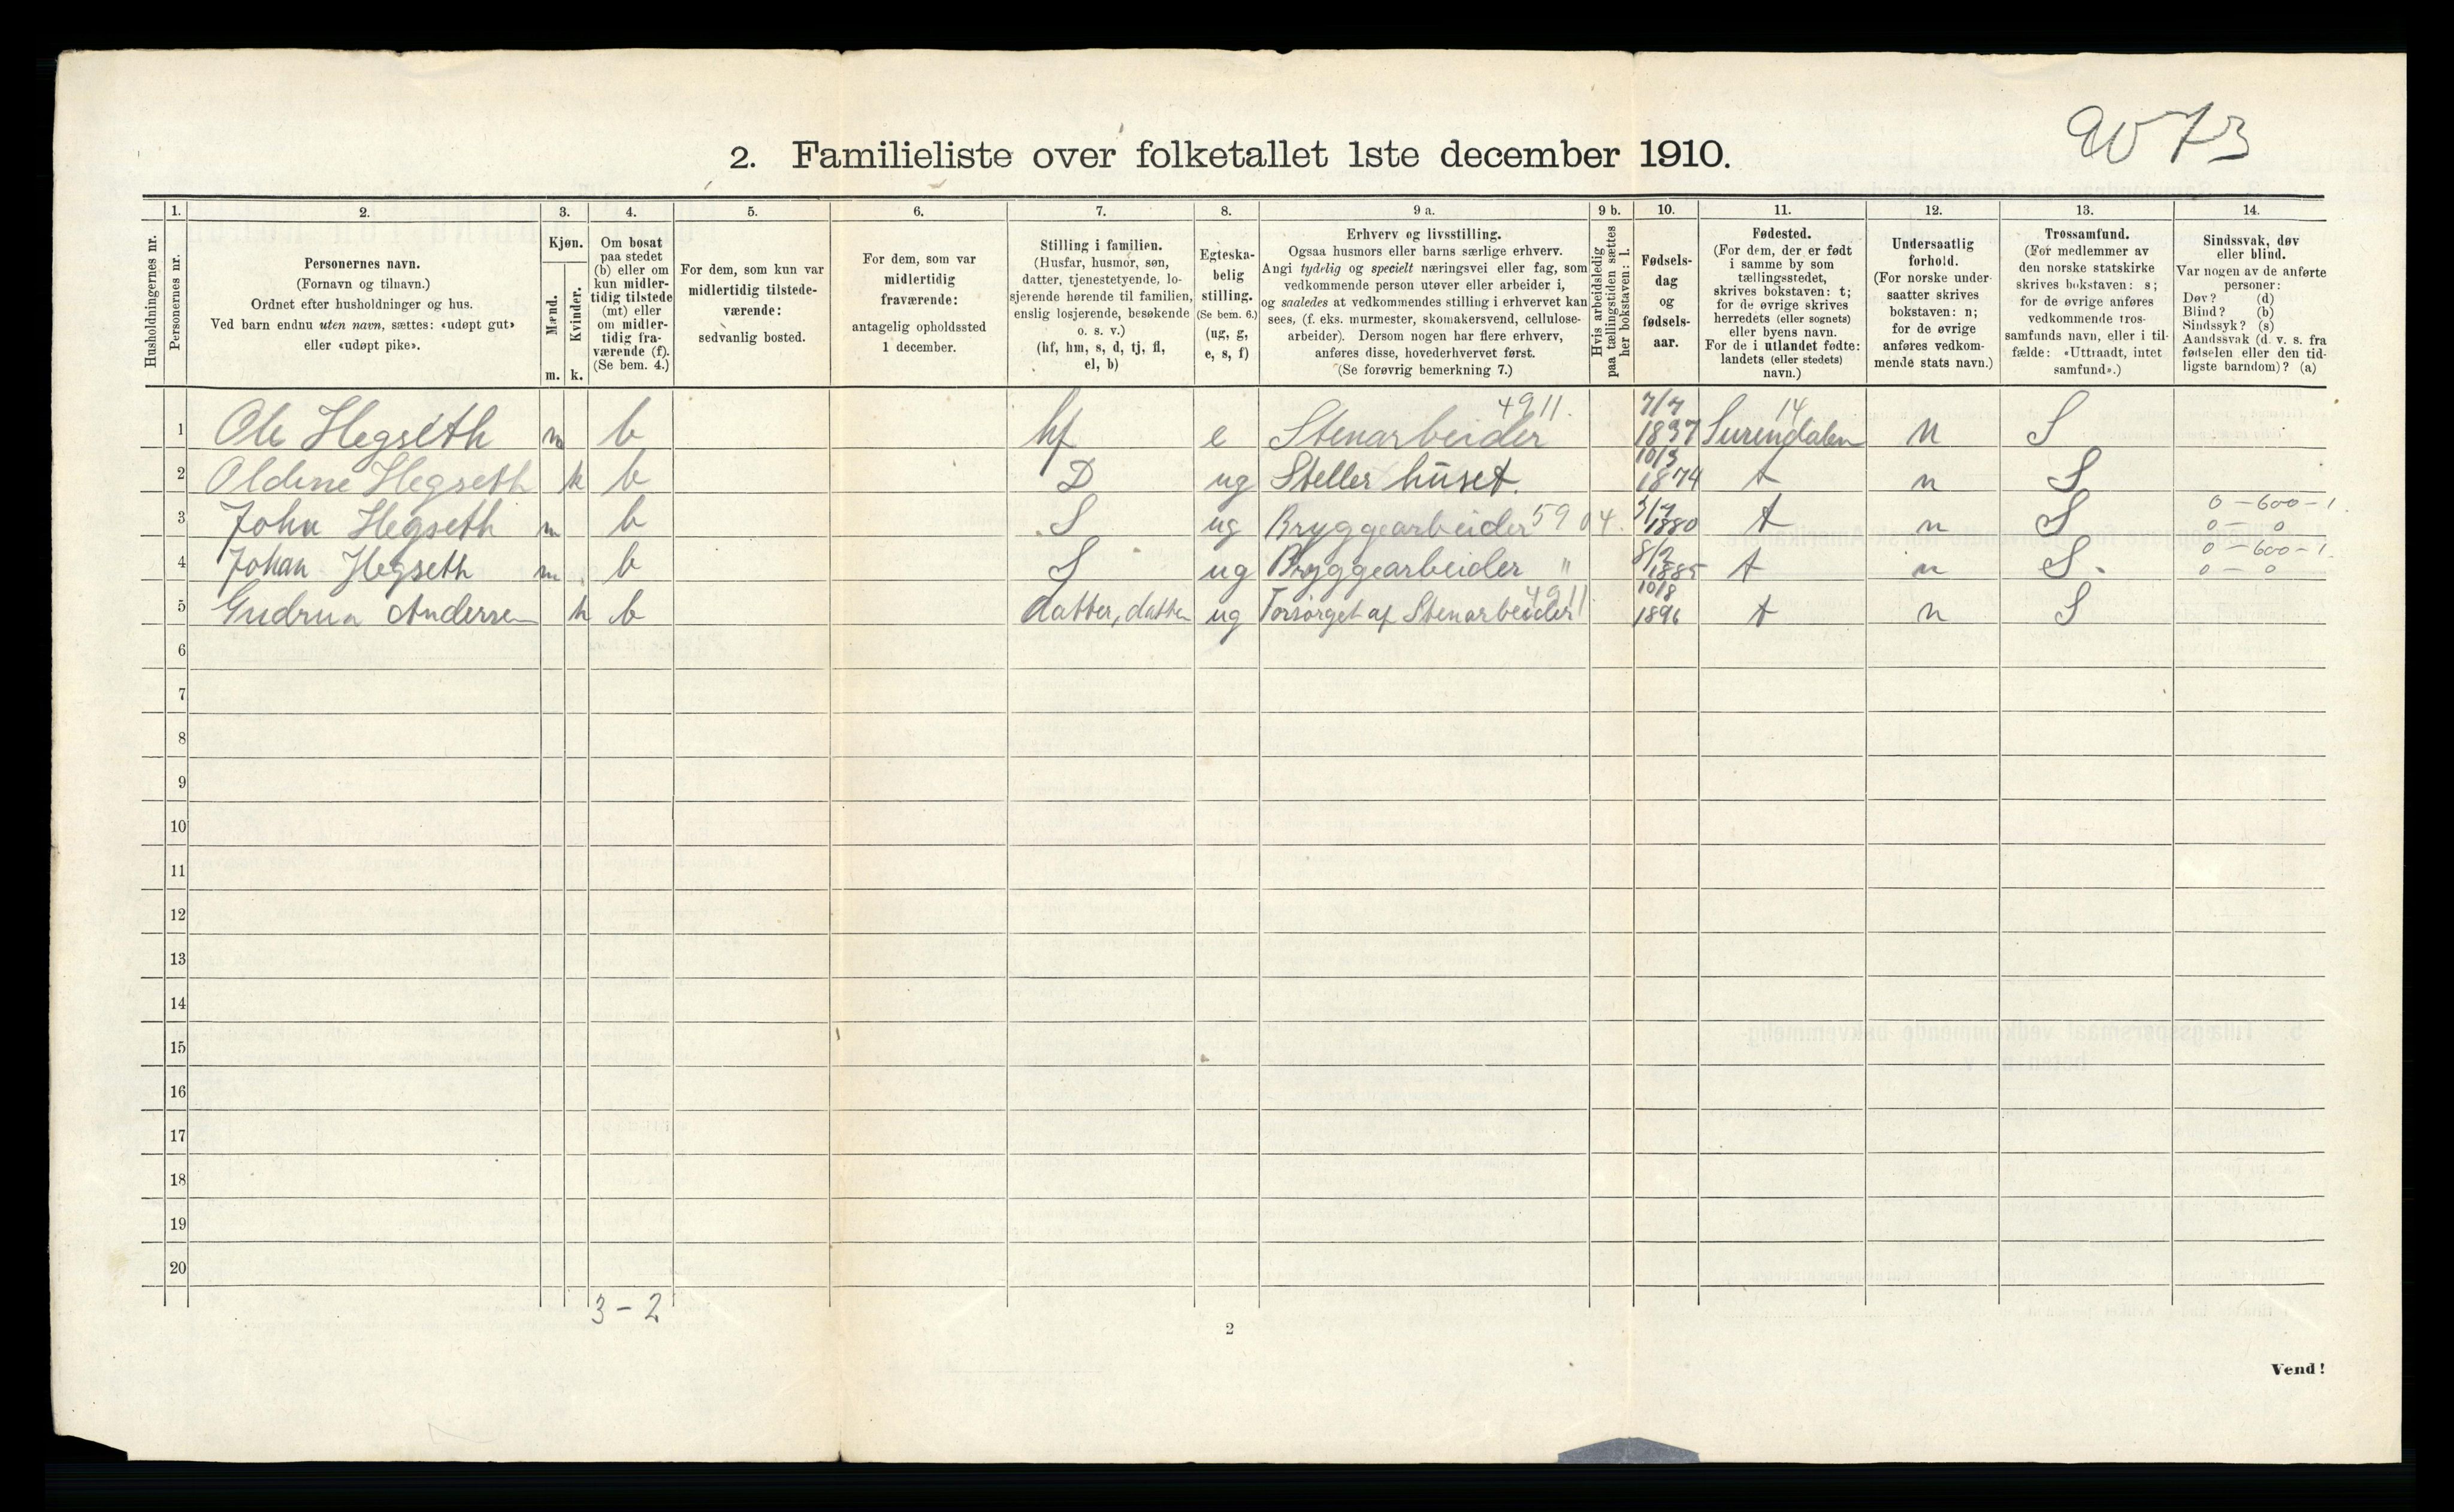 9073
2. Familieliste over folketallet 1ste december 1910.
1. 2. 3. 4. 5. 6. 7. 8. 9 a. 9 b. 10. 11. 12. 13. 14.
Husholdningernes nr.
Personernes nr.
Personernes navn.
(Fornavn og tilnavn.)
Ordnet efter husholdninger og hus.
Ved barn endnu uten navn, sættes: «udøpt gut»
eller «udøpt pike».
Kjøn.
Mænd.
Kvinder.
m. k.
Om bosat
paa stedet
(b) eller om
kun midler-
tidig tilstede
(mt) eller
om midler-
tidig fra-
værende (f).
(Se bem. 4.)
For dem, som kun var
midlertidig tilstede-
værende:
sedvanlig bosted.
For dem, som var
midlertidig
fraværende:
antagelig opholdssted
1 december.
Stilling i familien.
(Husfar, husmor, søn,
datter, tjenestetyende, lo-
sjerende hørende til familien,
enslig losjerende, besøkende
o. s. v.)
(hf, hm, s, d, tj, fl,
el, b)
Egteska-
belig
stilling.
(Se bem. 6.)
(ug, g,
e, s, f)
Erhverv og livsstilling.
Ogsaa husmors eller barns særlige erhverv.
Angi tydelig og specielt næringsvei eller fag, som
vedkommende person utøver eller arbeider i,
og saaledes at vedkommendes stilling i erhvervet kan
sees, (f. eks. murmester, skomakersvend, cellulose-
arbeider). Dersom nogen har flere erhverv,
anføres disse, hovederhvervet først.
(Se forøvrig bemerkning 7.)
Hvis arbeidsledig
paa tællingstiden sættes
her bokstaven: l.
Fødsels-
dag
og
fødsels-
aar.
Fødested.
(For dem, der er født
i samme by som
tællingsstedet,
skrives bokstaven: t;
for de øvrige skrives
herredets (eller sognets)
eller byens navn.
For de i utlandet fødte:
landets (eller stedets)
navn.)
Undersaatlig
forhold.
(For norske under-
saatter skrives
bokstaven: n;
for de øvrige
anføres vedkom-
mende stats navn.)
Trossamfund.
(For medlemmer av
den norske statskirke
skrives bokstaven: s;
for de øvrige anføres
vedkommende tros-
samfunds navn, eller i til-
fælde: «Uttraadt, intet
samfund».)
Sindssvak, døv
eller blind.
Var nogen av de anførte
personer:
Døv? (d)
Blind? (b)
Sindssyk? (s)
Aandssvak (d. v. s. fra
fødselen eller den tid-
ligste barndom)? (a)
4911. 7/7 14
1 Ole Hegseth m b hf e Stenarbeider 1837 Surendalen n S
10/3
2 Oldine Hegseth k b D ug Steller huset. 1874 t n S
0 - 600 - 1.
3 John Hegseth m b S ug Bryggearbeider 5904. 1880 t n S 0 - 0
8/2 0 - 600 - 1.
4 Johan Hegseth m b S ug Bryggearbeider " 1885 t n S. 0 - 0
4911 10/8
5 Gudrun Andersen k b datter, datter ug Forsørget af Stenarbeider 1896 t n S
6
7
8
9
10
11
12
13
14
15
16
17
18
19
20
3 - 2
2
Vend!